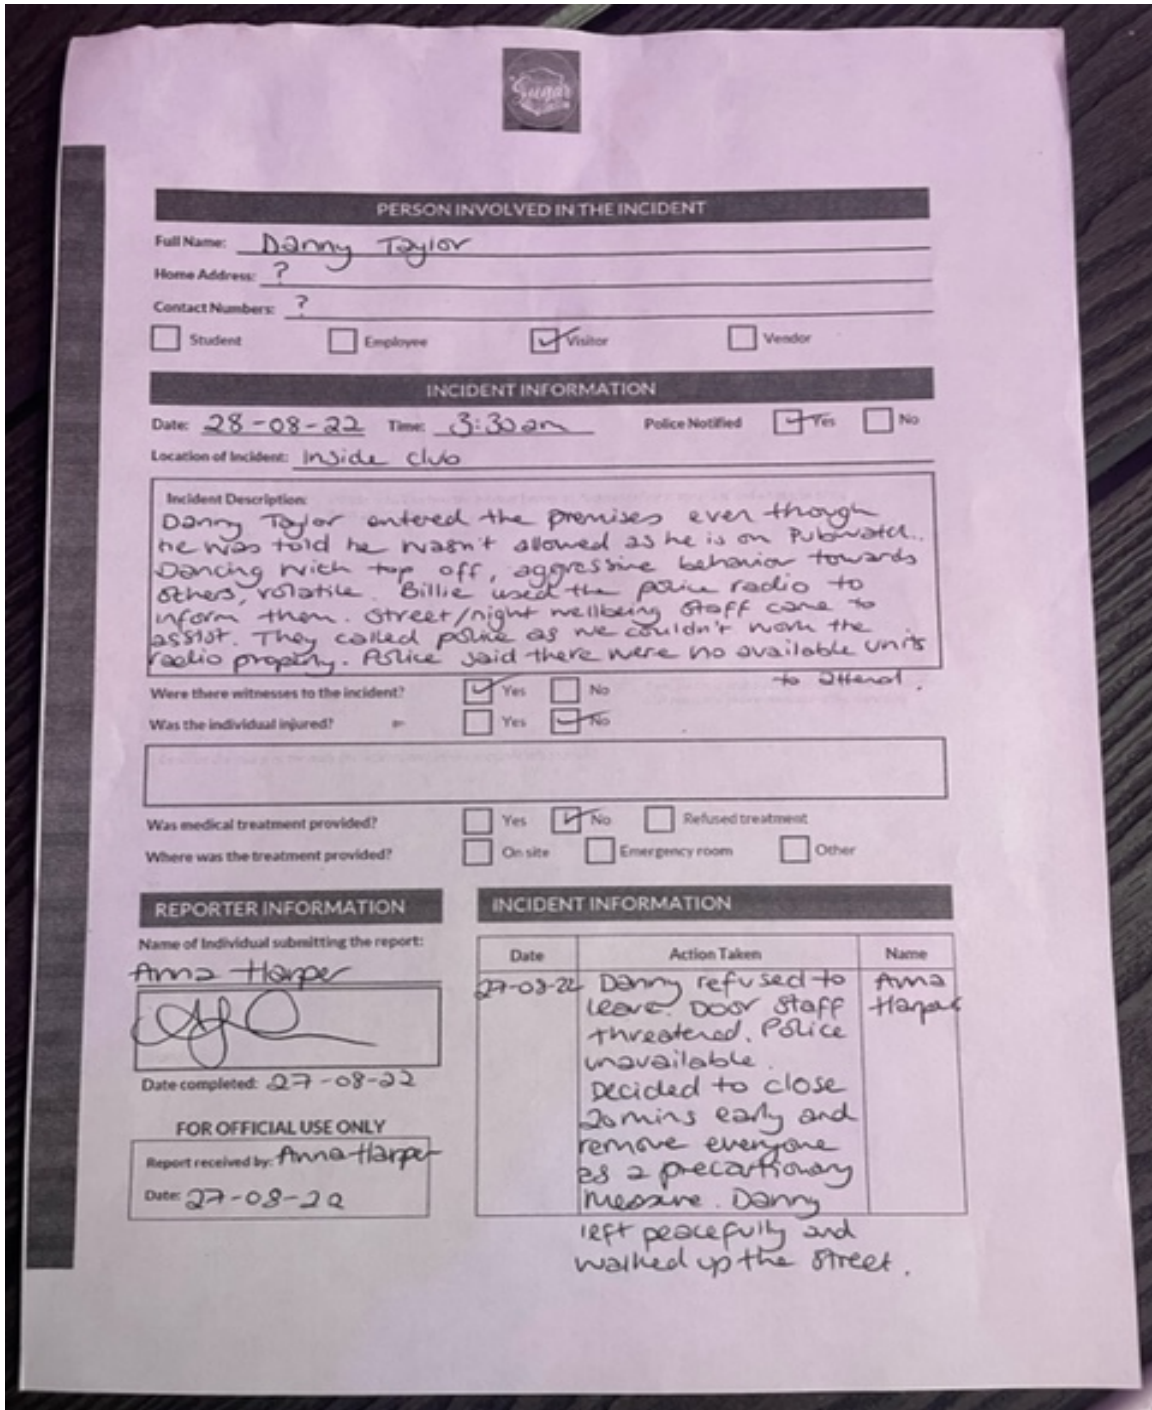 Sugar
PERSON INVOLVED IN THE INCIDENT
Full Name: Danny Taylor
Home Address: ?
Contact Numbers: ?
Student Employee Visitor Vendor
INCIDENT INFORMATION
Date: 28-08-22 Time: 3:30am Police Notified Yes No
Location of Incident: Inside club
Incident Description:
Danny Taylor entered the premises even though
he was told he wasn't allowed as he is on Pubwatch.
Dancing with top off, aggressive behavior towards
others, volatile. Billie used the police radio to
inform them. Street/night wellbeing staff came to
assist. They called police as we couldn't work the
radio properly. Police said there were no available units
to attend.
Were there witnesses to the incident? Yes No
Was the individual injured? Yes No
Was medical treatment provided? Yes No Refused treatment
Where was the treatment provided? On site Emergency room Other
REPORTER INFORMATION
Name of Individual submitting the report:
Anna Harper
Date completed: 27-08-22
FOR OFFICIAL USE ONLY
Report received by: Anna Harper
Date: 27-08-22
INCIDENT INFORMATION
Date Action Taken Name
27-08-22 Danny refused to Anna
leave. Door staff Harper
threatened. Police
unavailable.
Decided to close
20 mins early and
remove everyone
as a precautionary
measure. Danny
left peacefully and
walked up the street.